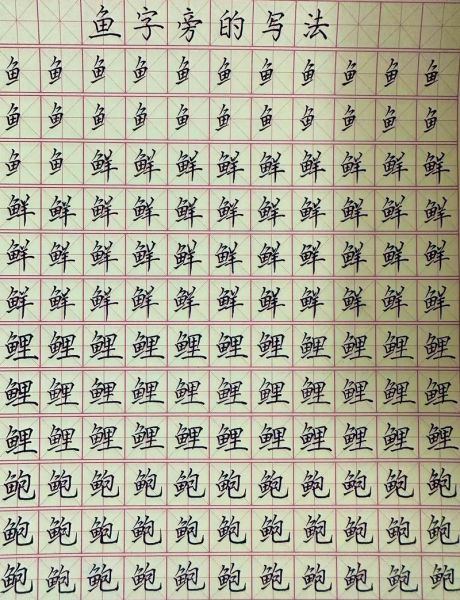 鱼字旁的写法
鱼鱼鱼鱼鱼鱼鱼鱼鱼鱼鱼
鱼鱼鱼鱼鱼鱼鱼鱼鱼鱼鱼
鱼鱼鲜鲜鲜鲜鲜鲜鲜鲜鲜
鲜鲜鲜鲜鲜鲜鲜鲜鲜鲜鲜
鲜鲜鲜鲜鲜鲜鲜鲜鲜鲜鲜
鲜鲜鲜鲜鲜鲜鲜鲜鲜鲜鲜
鲤鲤鲤鲤鲤鲤鲤鲤鲤鲤鲤
鲤鲤鲤鲤鲤鲤鲤鲤鲤鲤鲤
鲤鲤鲤鲤鲤鲤鲤鲤鲤鲤鲤
鲍鲍鲍鲍鲍鲍鲍鲍鲍鲍鲍
鲍鲍鲍鲍鲍鲍鲍鲍鲍鲍鲍
鲍鲍鲍鲍鲍鲍鲍鲍鲍鲍鲍